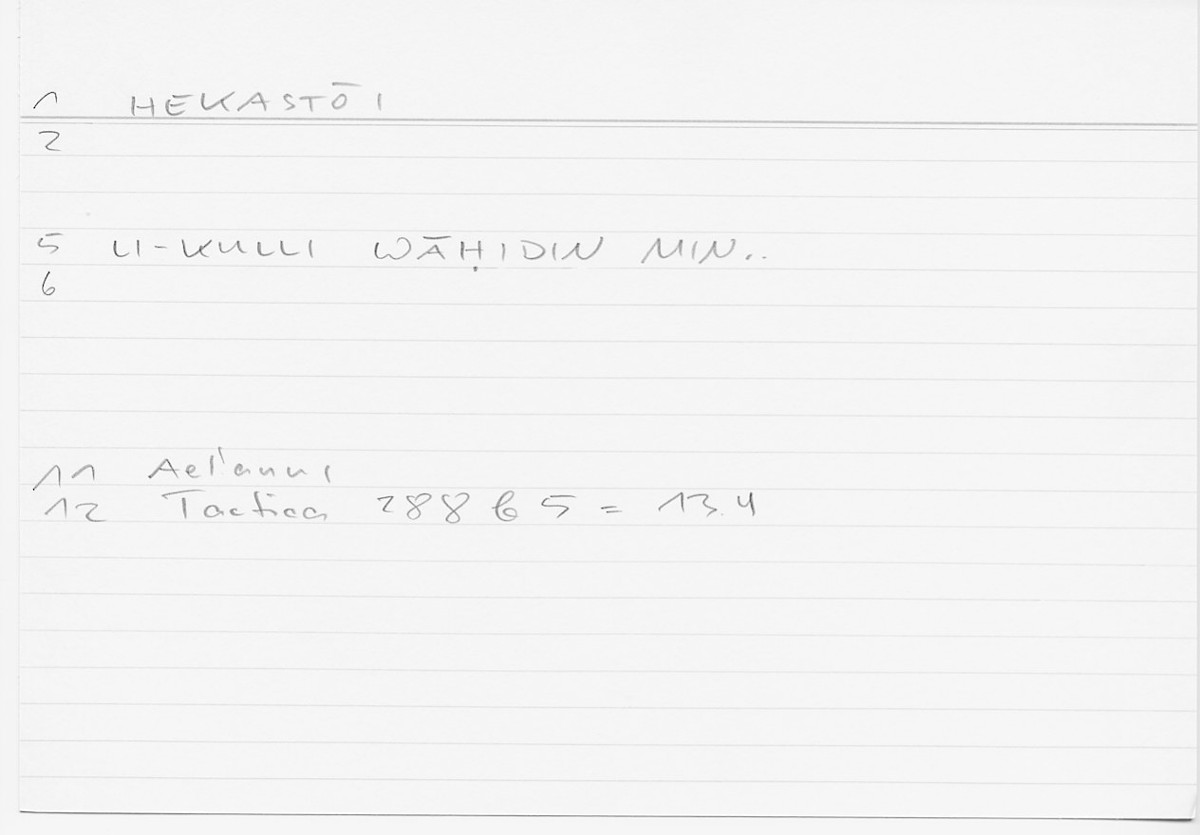 1 HEKASTŌI
2
5 LI-KULLI WĀḤIDIN MIN..
6
11 Ael'anui
12 Tactica 288 b 5 = 13.4